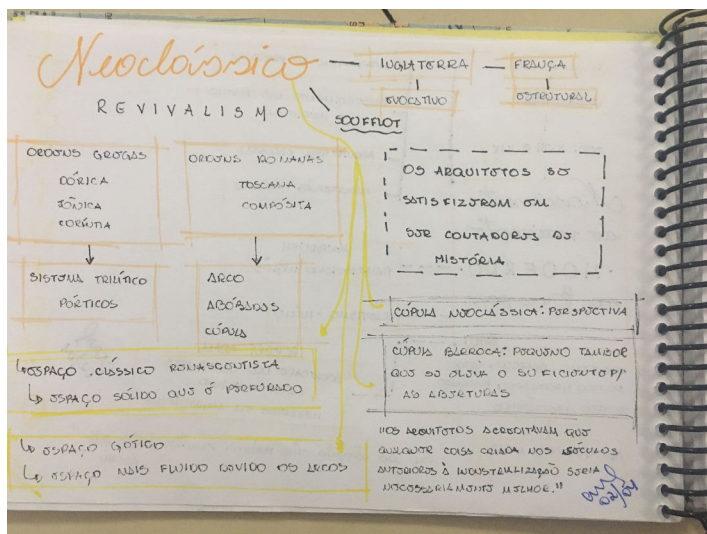 Neoclássico — INGLATERRA — FRANÇA
EVOCATIVO ESTRUTURAL
REVIVALISMO
SOUFFLOT
ORDENS GREGAS
DÓRICA
JÔNICA
CORÍNTIA
ORDENS ROMANAS
TOSCANA
COMPÓSITA
OS ARQUITETOS SE
SATISFIZERAM EM
SER CONTADORES DE
HISTÓRIA
SISTEMA TRILÍTICO
PÓRTICOS
ARCO
ABÓBADAS
CÚPULA
CÚPULA NEOCLÁSSICA: PERSPECTIVA
CÚPULA BARROCA: PEQUENO TAMBOR
QUE SE ELEVA O SUFICIENTE P/
AS ABERTURAS
↳ ESPAÇO CLÁSSICO RENASCENTISTA
↳ ESPAÇO SÓLIDO QUE É PERFURADO
↳ ESPAÇO GÓTICO
↳ ESPAÇO MAIS FLUIDO DEVIDO OS ARCOS
"OS ARQUITETOS ACREDITAVAM QUE
QUALQUER COISA CRIADA NOS SÉCULOS
ANTERIORES À INDUSTRIALIZAÇÃO SERIA
NECESSARIAMENTE MELHOR."